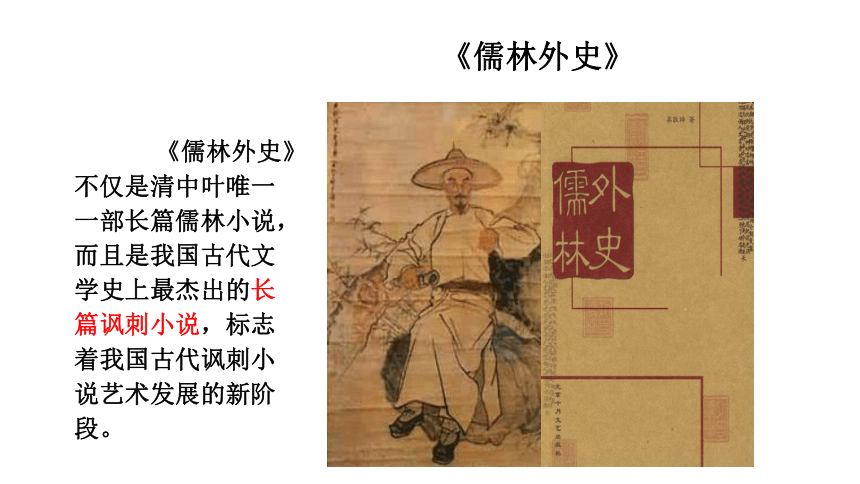 《儒林外史》
《儒林外史》
不仅是清中叶唯一
一部长篇儒林小说，
而且是我国古代文
学史上最杰出的长
篇讽刺小说，标志
着我国古代讽刺小
说艺术发展的新阶
段。
吴敬梓 著
儒林
外史
北京十月文艺出版社